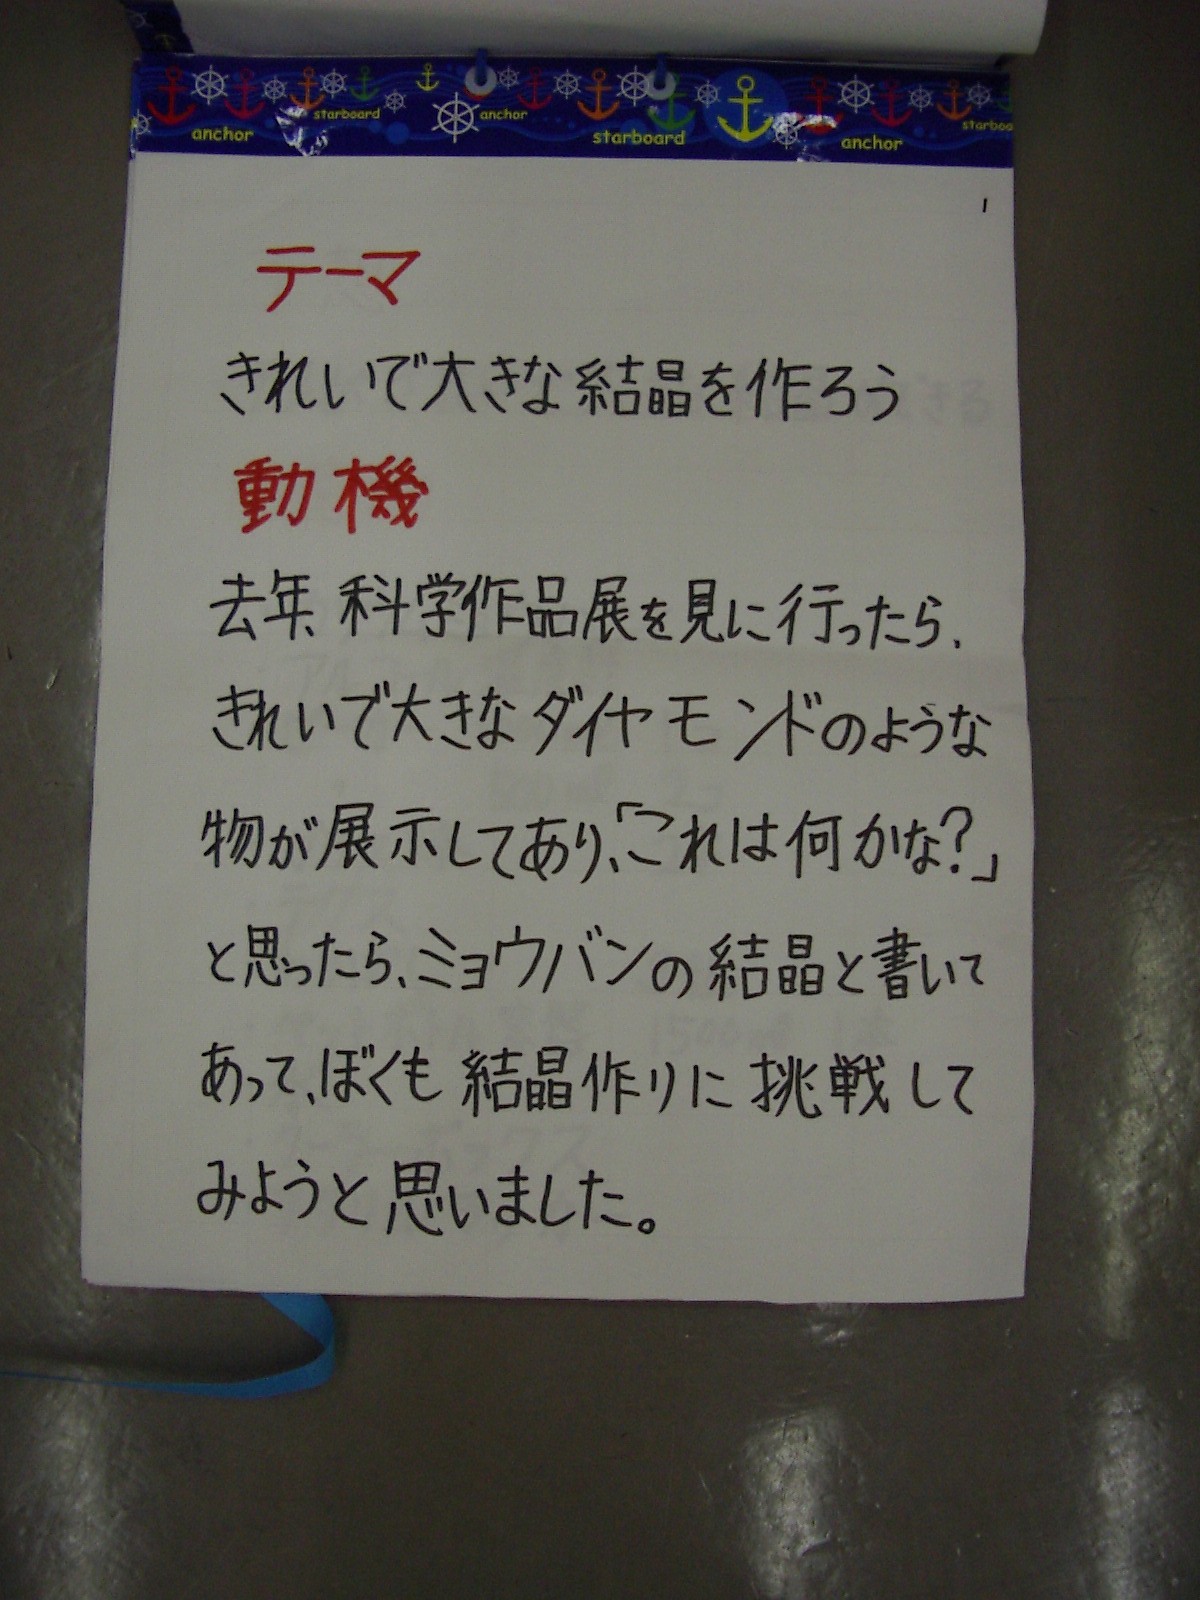 anchor starboard anchor starboard anchor starboa
1
テーマ
きれいで大きな結晶を作ろう
動機
去年、科学作品展を見に行ったら、
きれいで大きなダイヤモンドのような
物が展示してあり、「これは何かな?」
と思ったら、ミョウバンの結晶と書いて
あって、ぼくも結晶作りに挑戦して
みようと思いました。